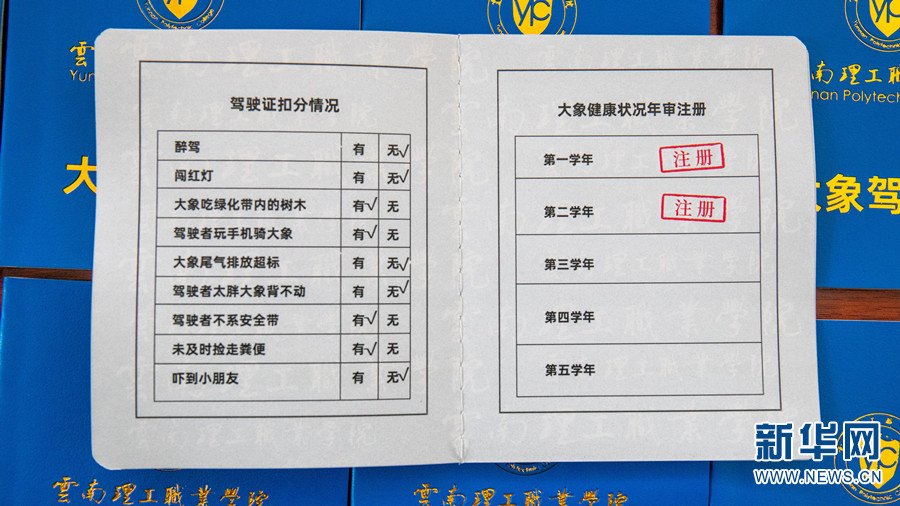 Yunnan Polytechnic College
Yunnan Polytechnic College
雲南理工
Yun
南理工職業
nan Polytech
大
大象驾
驾驶证扣分情况
醉驾 有 无√
闯红灯 有 无√
大象吃绿化带内的树木 有√ 无
驾驶者玩手机骑大象 有√ 无
大象尾气排放超标 有 无√
驾驶者太胖大象背不动 有 无√
驾驶者不系安全带 有√ 无
未及时捡走粪便 有√ 无
吓到小朋友 有 无√
大象健康状况年审注册
第一学年 注册
第二学年 注册
第三学年
第四学年
第五学年
雲南理工職業學院
雲南理工職業學院
新华网
WWW.NEWS.CN